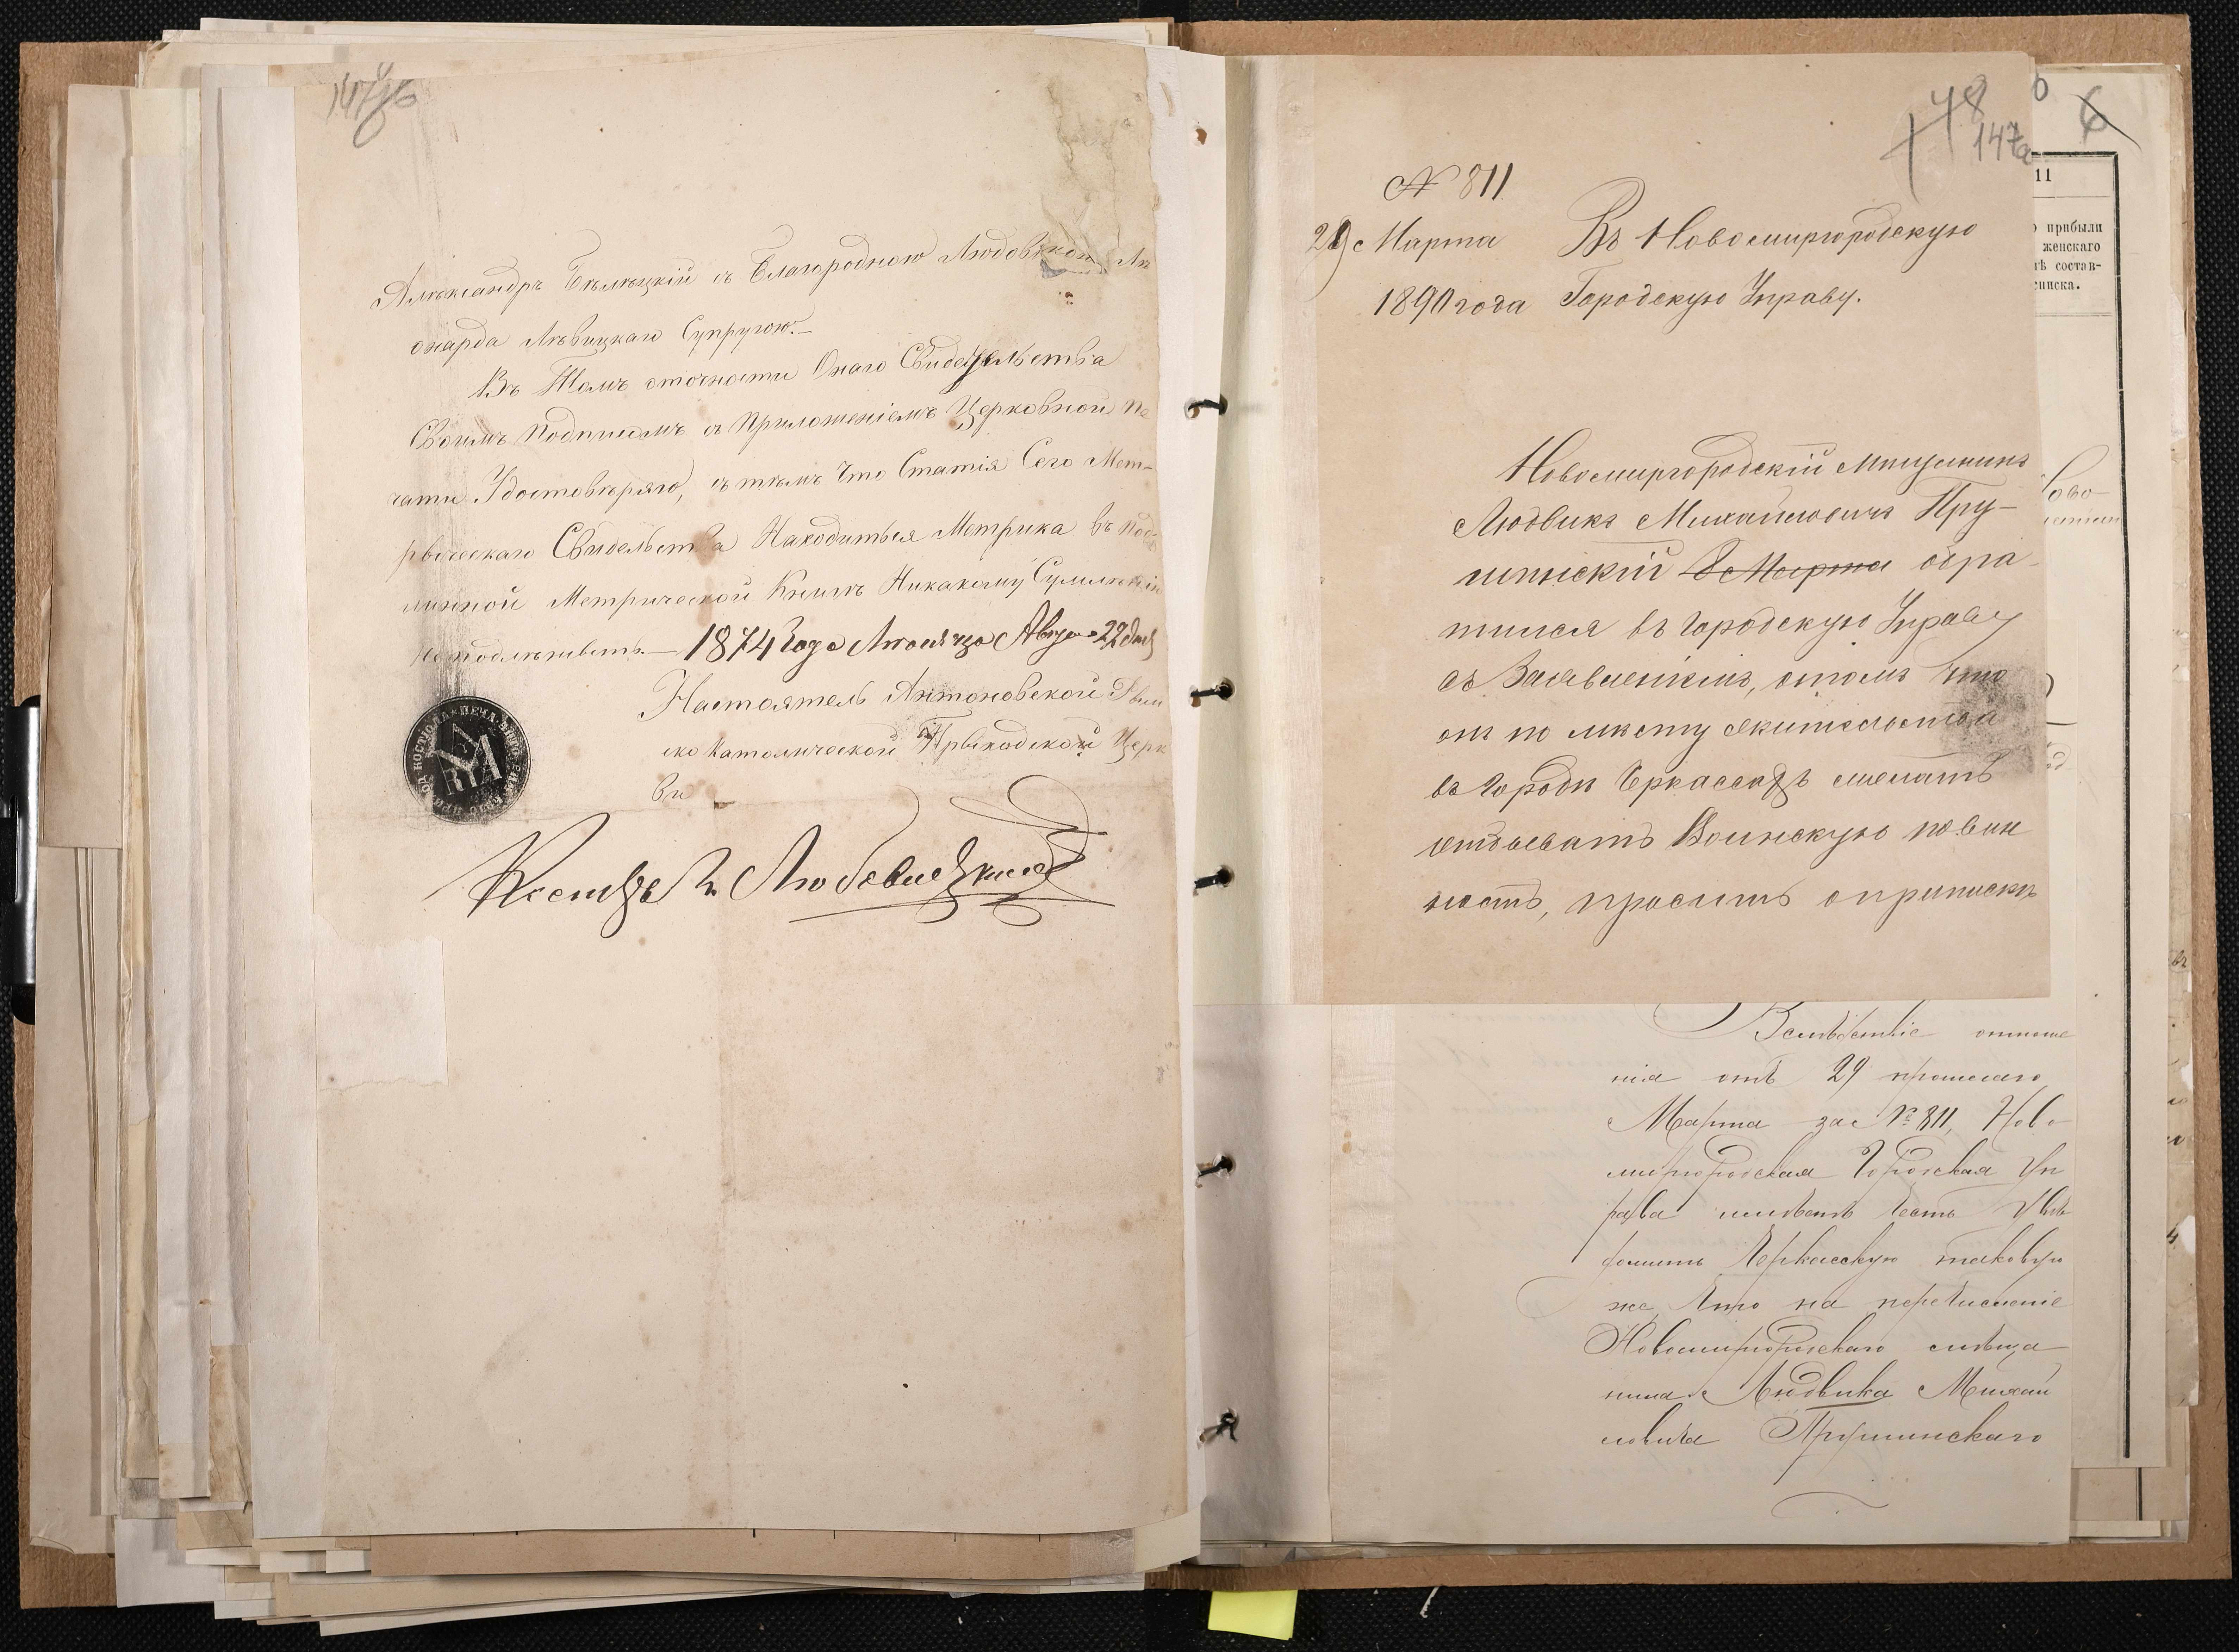 147б
Александръ Бѣлецкій съ Благородною Людовикою Ле
онарда Левицкаго Супругою.—
Въ Томъ оточности Онаго Свидетельства
Своимъ Подписомъ съ Приложеніемъ Церковной пе
чати Удостовѣряю, съ тѣмъ что Статія Сего Мет-
рыческаго Свидельства Находиться Метрика въ под
линной Метрической Книгѣ Никакому Сумлѣнію
неподлѣживетъ.— 1874 Года Месяца Авгус 22 дня
Настоятель Антоновской Рым
ско Католической Прыходской Церк
ви
Ксендзъ
RYA
148
147а
6
№ 811
29 Марта Въ Новомиргородскую
1890 года Городскую Управу.
Новомиргородскій мѣщанинъ
Людвикъ Михайловичъ Пру-
шинскій 8 Марта обра-
тился въ Городскую Управу
съ Заявленіемъ, отомъ что
онъ по мѣсту жительства
въ городѣ Черкассахъ желаетъ
отбывать Воинскую повин
ность, проситъ оприпискѣ
11
прибыли
женскаго
состав-
списка.
Вслѣдствіе отноше
нія отъ 29 прошлаго
Марта за № 811, Ново-
миргородская Городская Уп
рава имѣетъ честь Увѣ
домить Черкасскую таковую
же, что на перечисленіе
Новомиргородскаго мѣща
нина Людвика Михай
ловича Прушинскаго